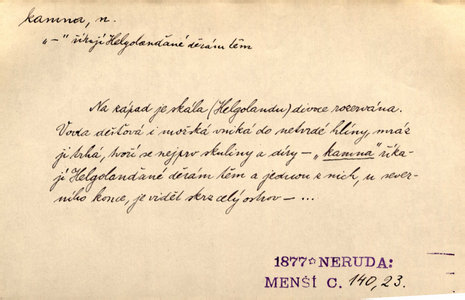 kamna, n.
„–" říkají Helgolanďané děrám těm
Na západ je skála (Helgolandu) divoce rozervána.
Voda dešťová i mořská vniká do netvrdé hlíny, mráz
ji trhá, tvoří se nejprv skuliny a díry – „kamna" říka-
jí Helgolanďané děrám těm a jednou z nich, u sever-
ního konce, je vidět skrz celý ostrov – ...
1877☆NERUDA:
MENŠÍ C. 140,23.